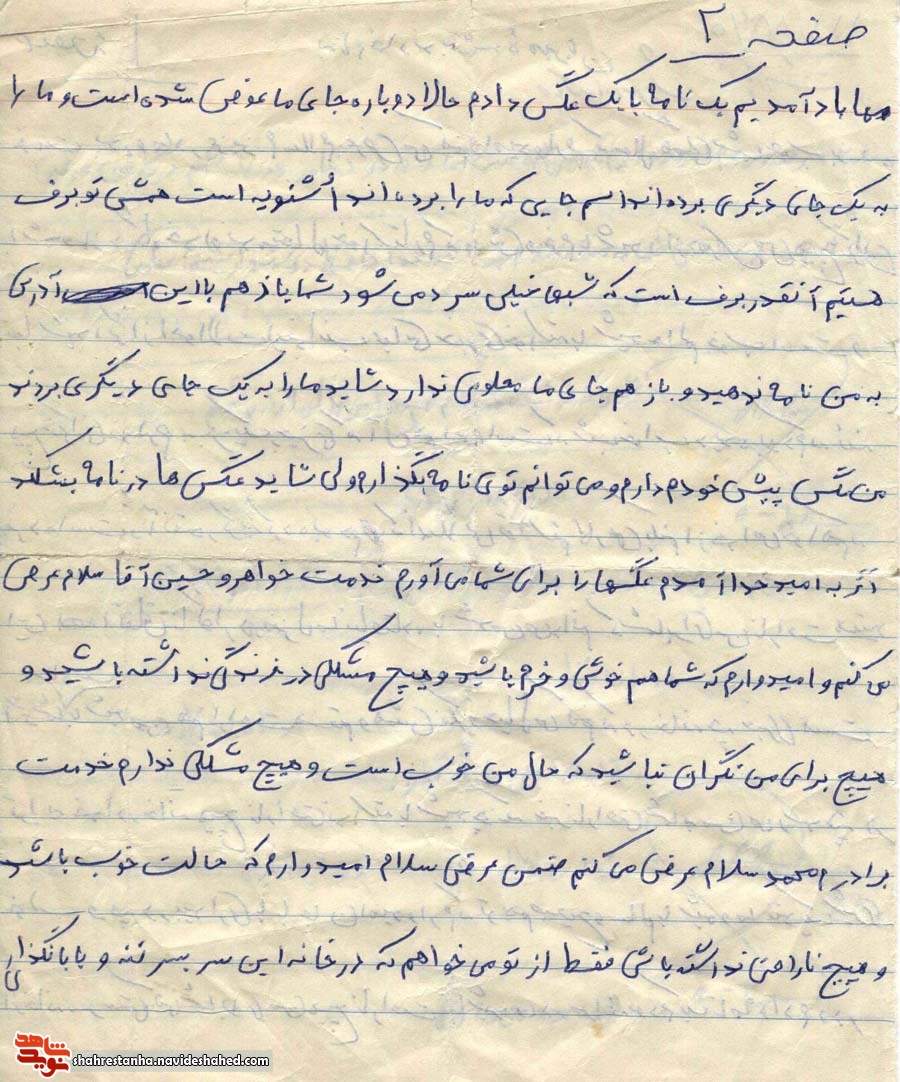 صفحه ۲
مهاباد آمدیم یک نامه با یک عکس دادم حالا دوباره جای ما عوض شده است و ما را
به یک جای دیگری برده اند اسم جایی که ما را برده اند اُشنویه است همش تو برف
هستیم آنقدر برف است که شبها خیلی سرد می شود شما باز هم با این آدرس
به من نامه ندهید و باز هم جای ما معلومی ندارد شاید ما را به یک جای دیگری بردند
من عکس پیش خودم دارم و می توانم توی نامه بگذارم ولی شاید عکس ها در نامه بشکند
اگر به امید خدا آمدم عکسها را برای شما می آورم خدمت خواهر و حسین آقا سلام عرض
می کنم و امیدوارم که شما هم خوش و خرم باشید و هیچ مشکلی در زندگی نداشته باشید و
هیچ برای من نگران نباشید که حال من خوب است و هیچ مشکلی ندارم خدمت
برادرم محمد سلام عرض می کنم ضمن عرض سلام امیدوارم که حالت خوب باشد
و هیچ ناراحتی نداشته باشی فقط از تو می خواهم که در خانه این سر بسر ننه و بابا نگذاری
نوید شاهد
shahrestanha.navideshahed.com